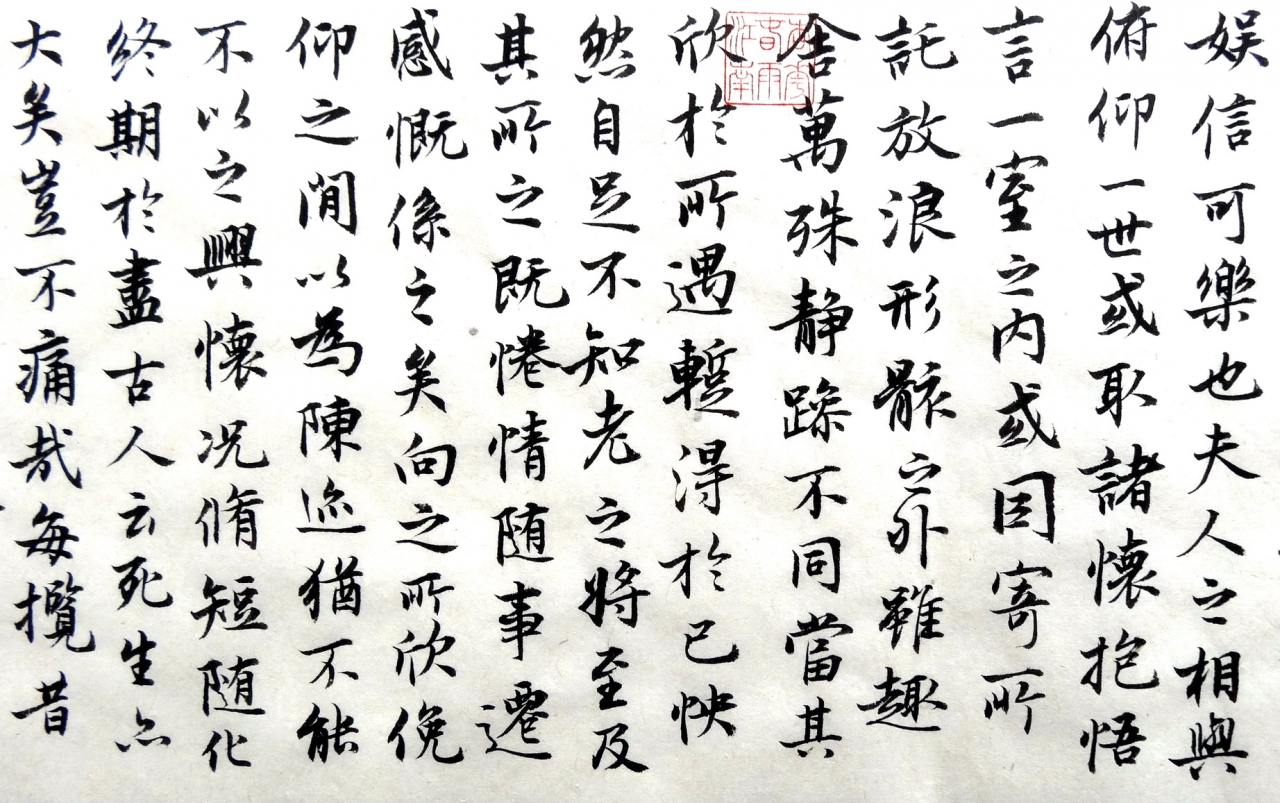 娱信可樂也夫人之相與
俯仰一世或取諸懷抱悟
言一室之内或因寄所
託放浪形骸之外雖趣
舍萬殊静躁不同當其
欣於所遇暫得於己怏
然自足不知老之將至及
其所之既惓情随事遷
感慨係之矣向之所欣俛
仰之間以為陳迹猶不能
不以之興懷况脩短随化
終期於盡古人云死生亦
大矣豈不痛哉每攬昔
春雨
江南